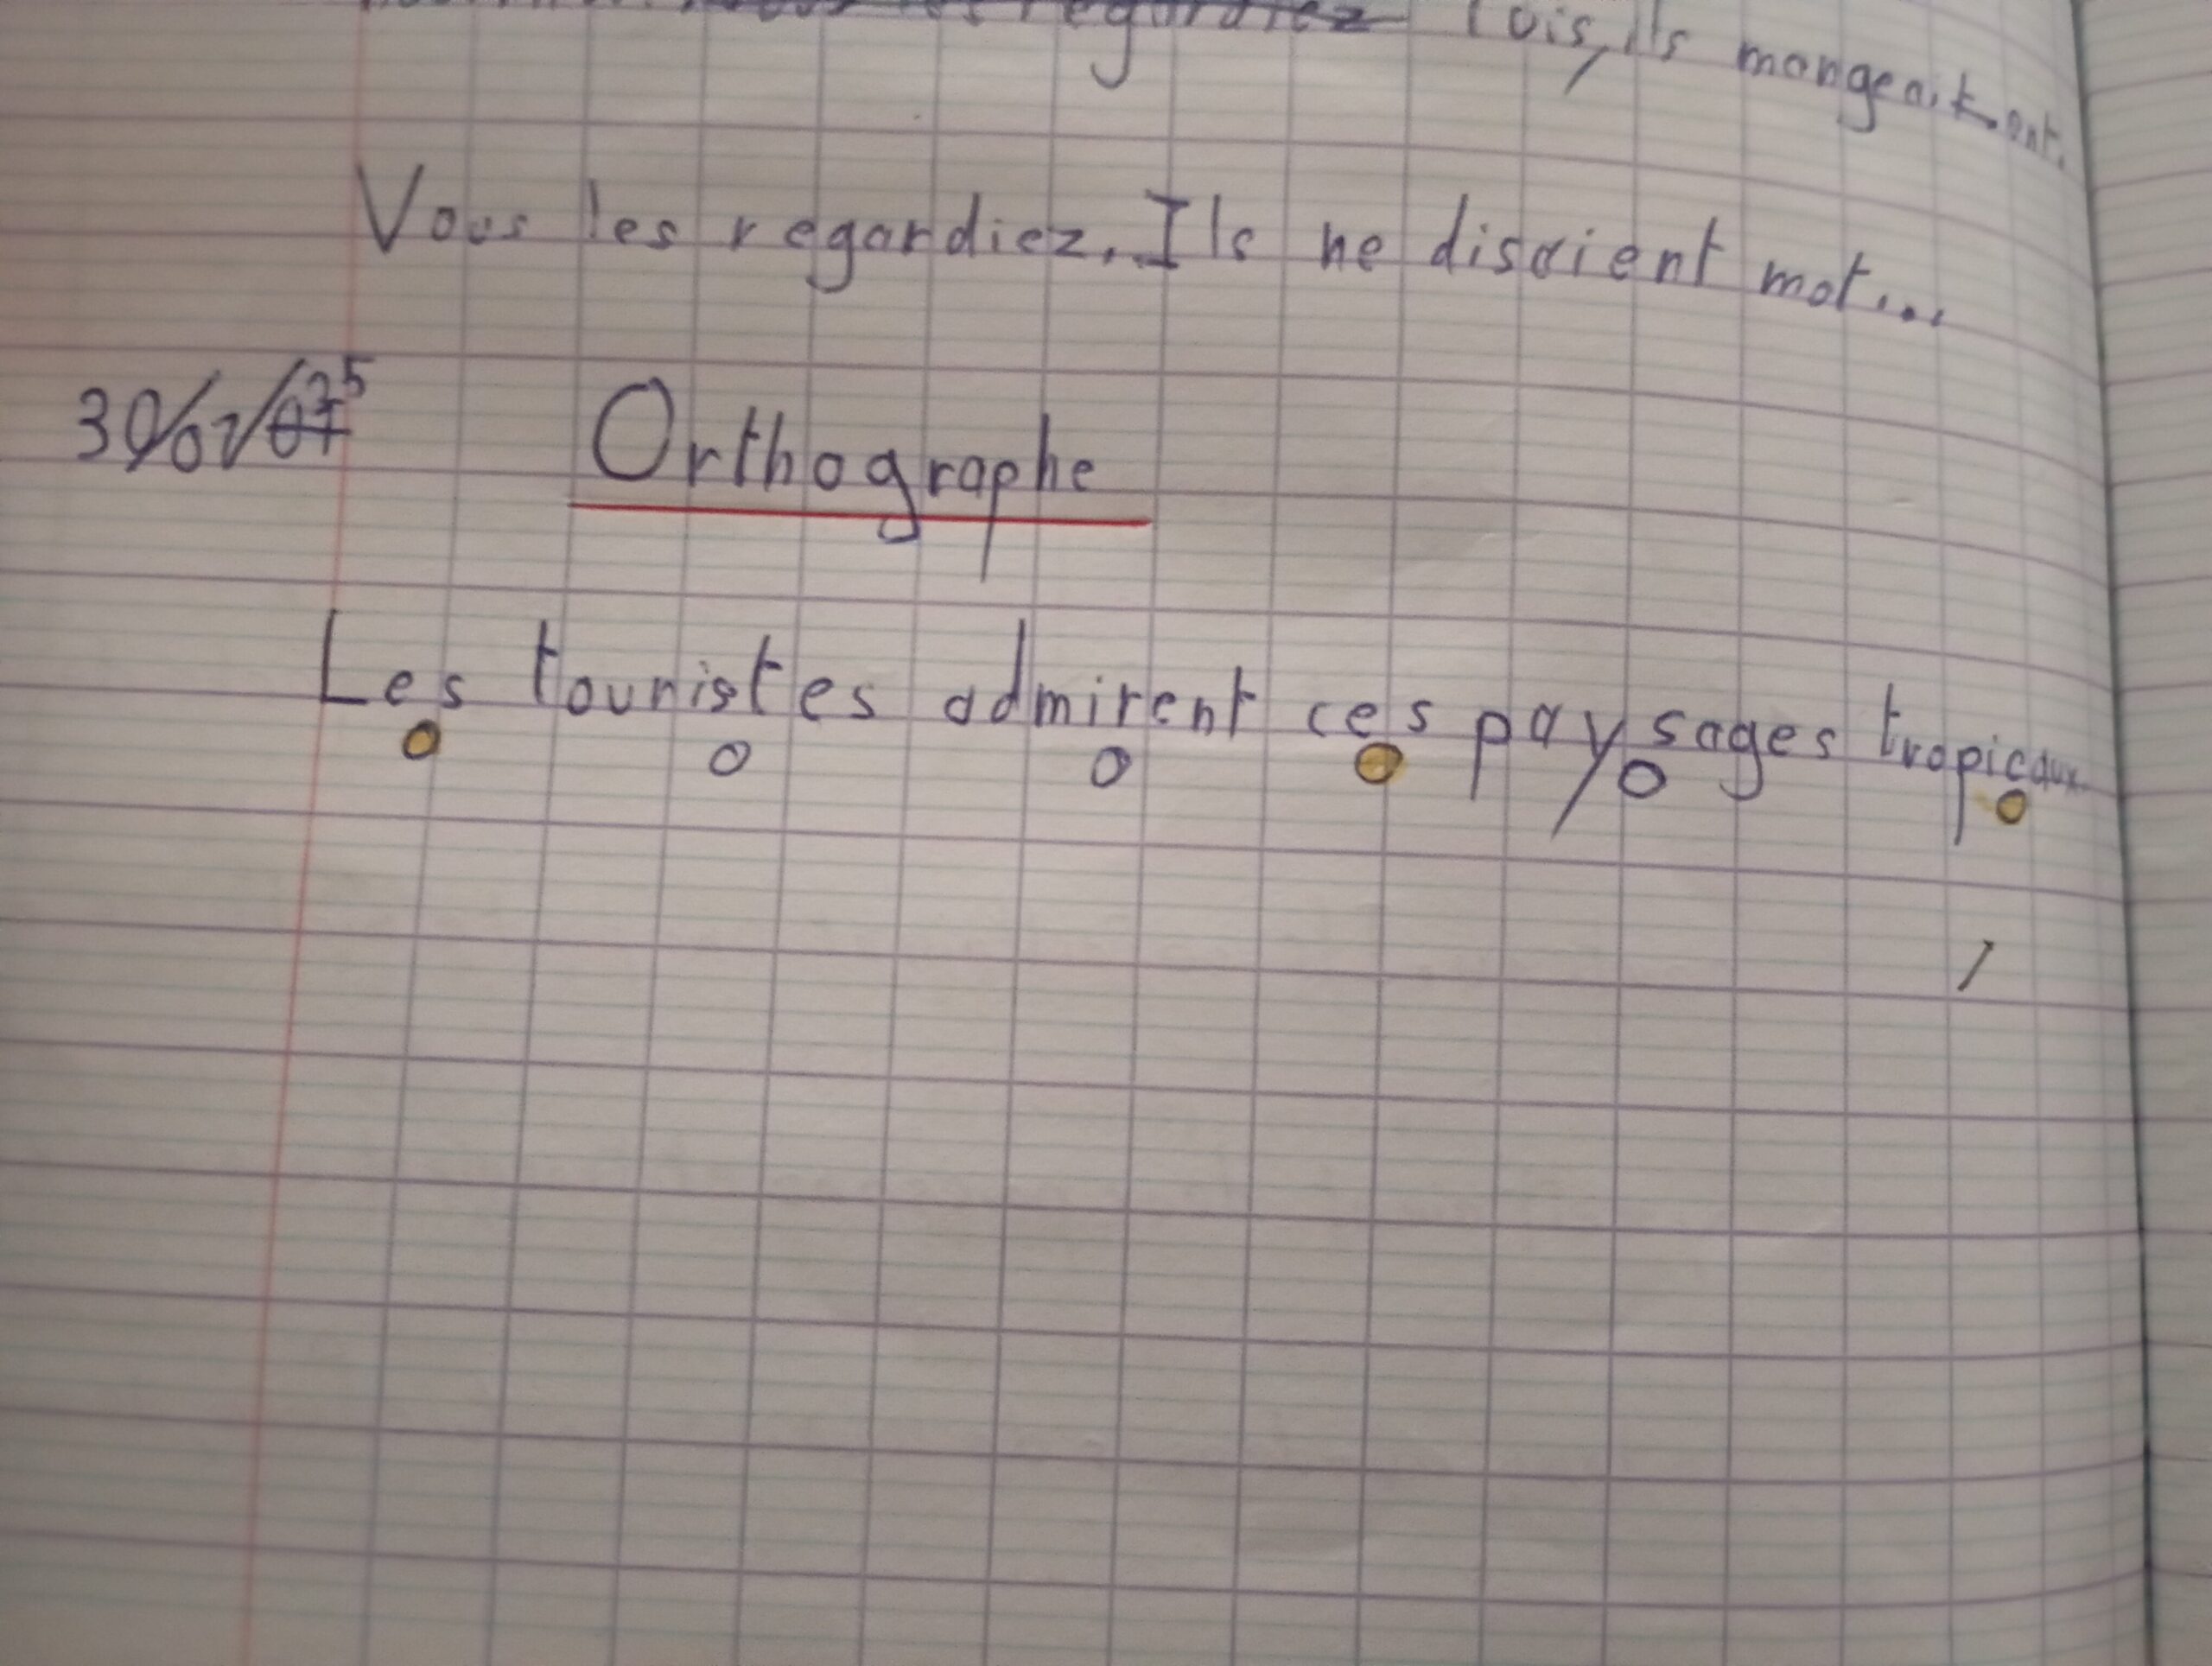 les regardiez Puis, ils mangeaient.
Vous les regardiez. Ils ne disaient mot...
30/01/25 Orthographe
Les touristes admirent ces paysages tropicaux